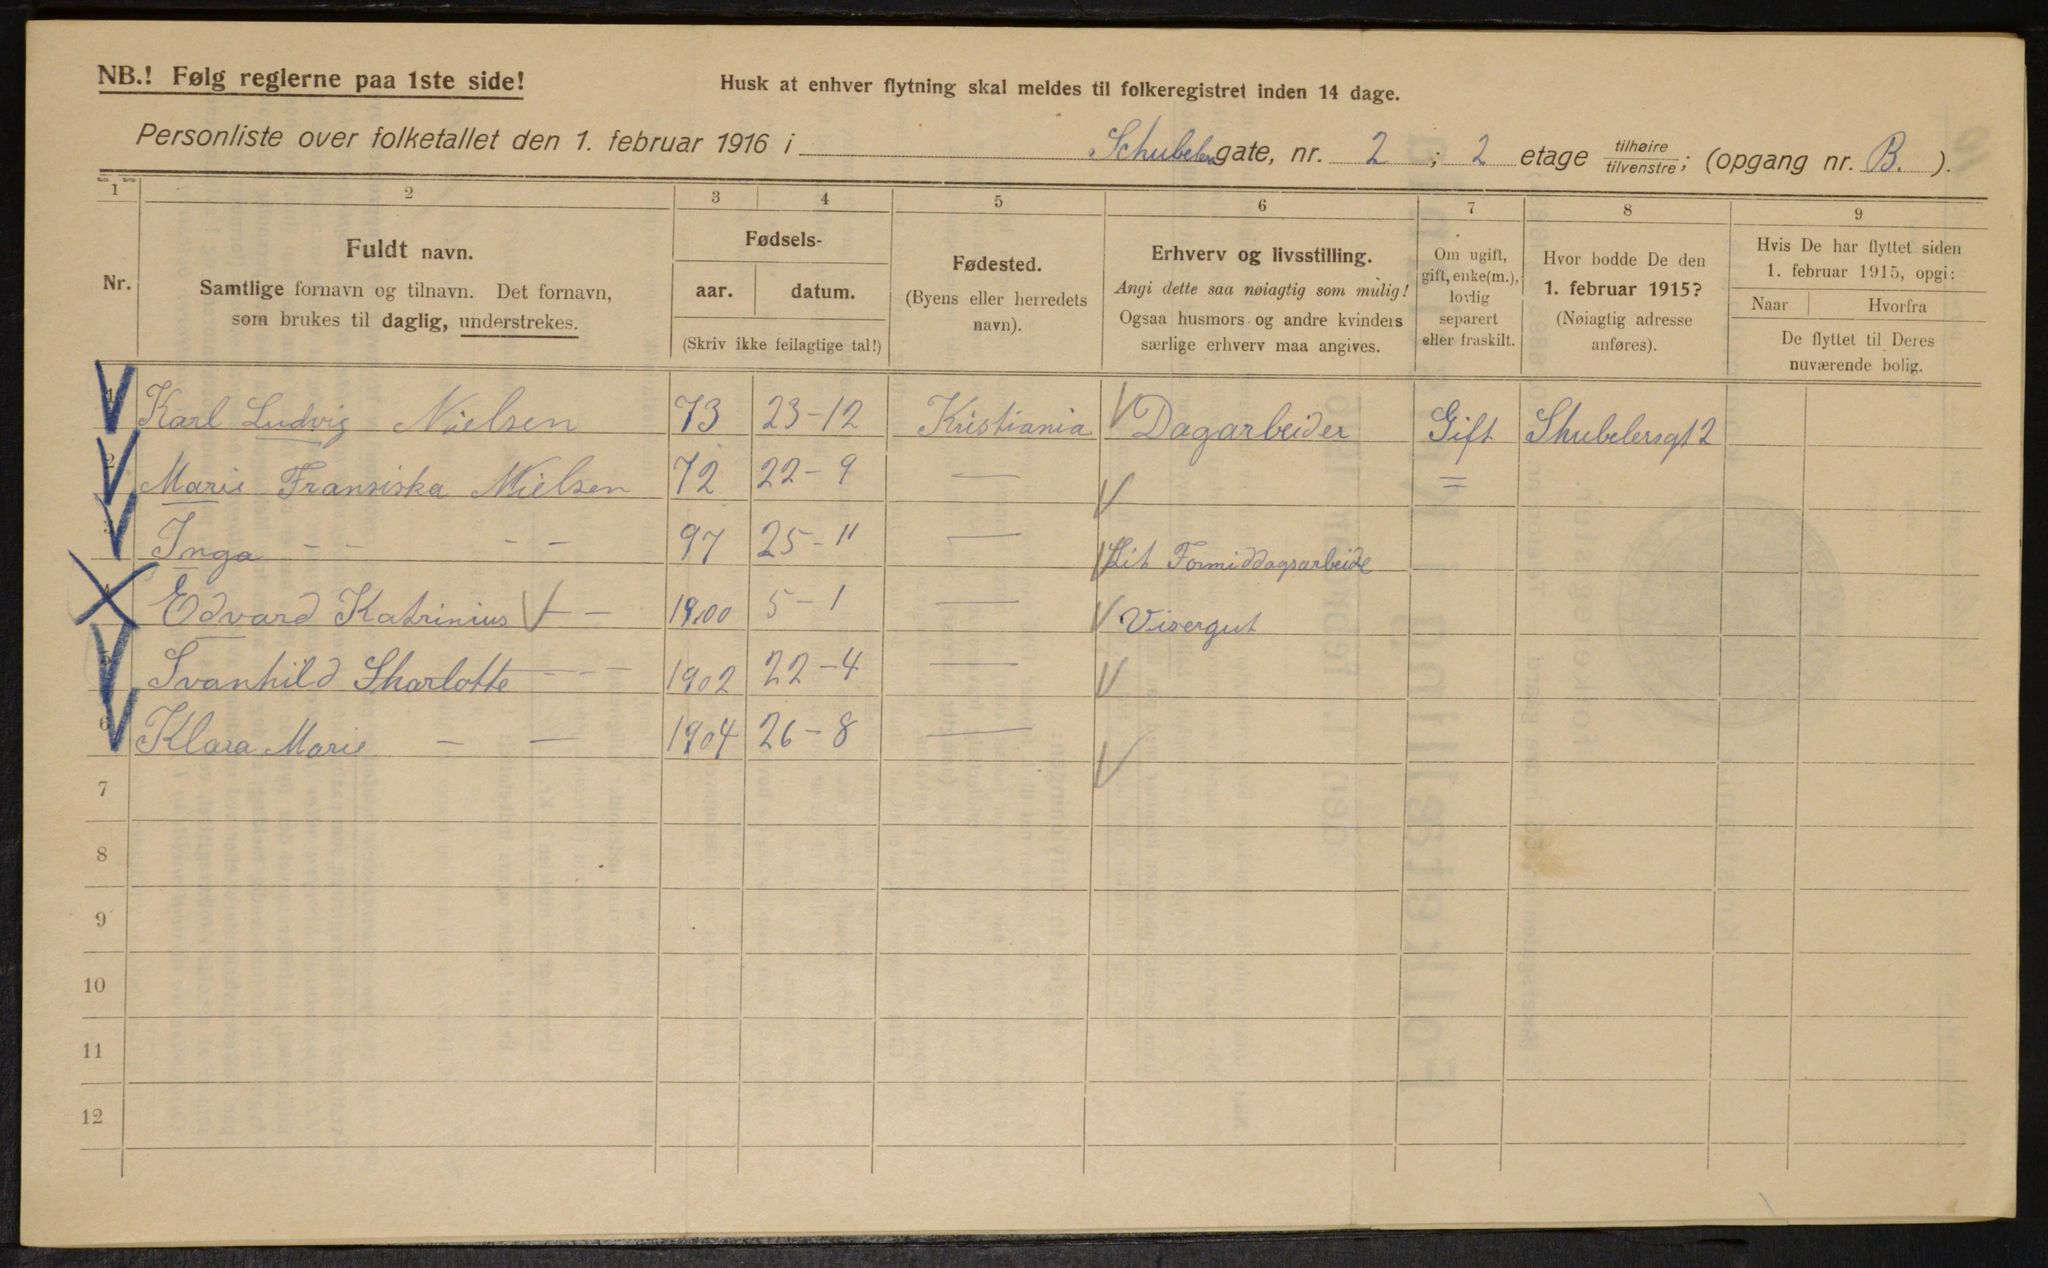 NB.! Følg reglerne paa 1ste side!
Husk at enhver flytning skal meldes til folkeregistret inden 14 dage.
Personliste over folketallet den 1. februar 1916 i Schubelers gate, nr. 2 ; 2 etage tilhøire tilvenstre; (opgang nr. B. ).
1 2 3 4 5 6 7 8 9
Nr.
Fuldt navn.
Samtlige fornavn og tilnavn. Det fornavn,
som brukes til daglig, understrekes.
Fødsels-
aar. datum.
(Skriv ikke feilagtige tal!)
Fødested.
(Byens eller herredets
navn).
Erhverv og livsstilling.
Angi dette saa nøiagtig som mulig!
Ogsaa husmors og andre kvinders
særlige erhverv maa angives.
Om ugift,
gift, enke(m.),
lovlig
separert
eller fraskilt.
Hvor bodde De den
1. februar 1915?
(Nøiagtig adresse
anføres).
Hvis De har flyttet siden
1. februar 1915, opgi:
Naar Hvorfra
De flyttet til Deres
nuværende bolig.
1 Karl Ludvig Nielsen 73 23-12 Kristiania Dagarbeider Gift Shubelersgt 2
2 Marie Fransiska Nielsen 72 22-9 — =
3 Inga - - - - 97 25-11 — Lit Formiddagsarbeide
4 Edvard Katrinius - - 1900 5-1 — Visergut
5 Svanhild Sharlotte - - - 1902 22-4 —
6 Klara Marie - - 1904 26-8 —
7
8
9
10
11
12